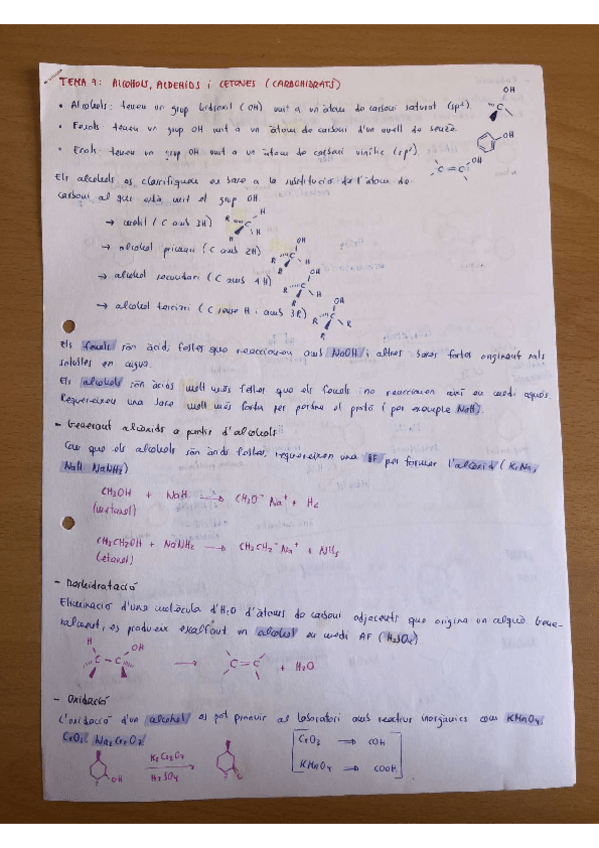 TEMA 9: ALCOHOLS, ALDEHIDS i CETONES (CARBOHIDRATS)
• Alcohols: tenen un grup hidroxil (OH) unit a un àtom de carboni saturat (sp³).
OH
C
• Fenols: tenen un grup OH unit a un àtom de carboni d'un anell de benzè.
OH
• Enols: tenen un grup OH unit a un àtom de carboni vinílic (sp²)
OH
C=C
Els alcohols es classifiquen en base a la substitució de l'àtom de
carboni al que està unit el grup OH.
→ metil (C amb 3H)
→ alcohol primari (C amb 2H)
→ alcohol secundari (C amb 1H)
→ alcohol terciari (C sense H i amb 3R)
Els fenols són àcids febles que reaccionen amb NaOH i altres bases fortes originant sals
solubles en aigua.
Els alcohols són àcids molt més febles que els fenols i no reaccionen així en medi aquós
Requereixen una base molt més forta per perdre el protó (per exemple NaH).
- Generant alcòxids a partir d'alcohols
Com que els alcohols són àcids febles, requereixen una BF per formar l'alcòxid (K, Na,
NaH, NaNH₂)
CH₃OH + NaH → CH₃O⁻Na⁺ + H₂
(metanol)
CH₃CH₂OH + NaNH₂ → CH₃CH₂⁻Na⁺ + NH₃
(etanol)
- Deshidratació
Eliminació d'una molècula d'H₂O d'àtoms de carboni adjacents que origina un alquè. Gene-
ralment, es produeix escalfant un alcohol en medi AF (H₂SO₄)
H OH
C-C → C=C + H₂O
- Oxidació
L'oxidació d'un alcohol es pot promoure al laboratori amb reactius inorgànics com KMnO₄,
CrO₃, Na₂Cr₂O₇.
OH K₂Cr₂O₇
H₂SO₄
CrO₃ → COH
KMnO₄ → COOH